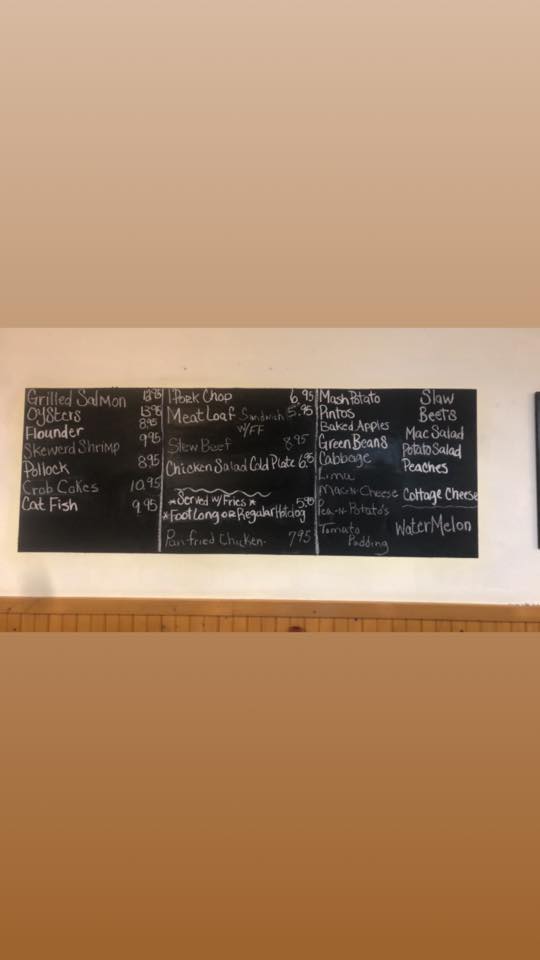 Grilled Salmon
Oysters 13.95
Flounder 8.95
Skewerd Shrimp 9.95
Pollock 8.95
Crab Cakes 10.95
Cat Fish 9.95
1 Pork Chop 6.95
Meat Loaf Sandwich 5.95
W/FF
Stew Beef 8.95
Chicken Salad Cold Plate 6.95
*Served w/Fries* 5.95
*Foot Long or Regular Hotdog
Pan-fried Chicken. 7.95
Mash Potato
Pintos
Baked Apples
Green Beans
Cabbage
Lima
Mac-N-Cheese
Pea-N-Potato's
Tomato
Pudding
Slaw
Beets
Mac Salad
Potato Salad
Peaches
Cottage Cheese
WaterMelon